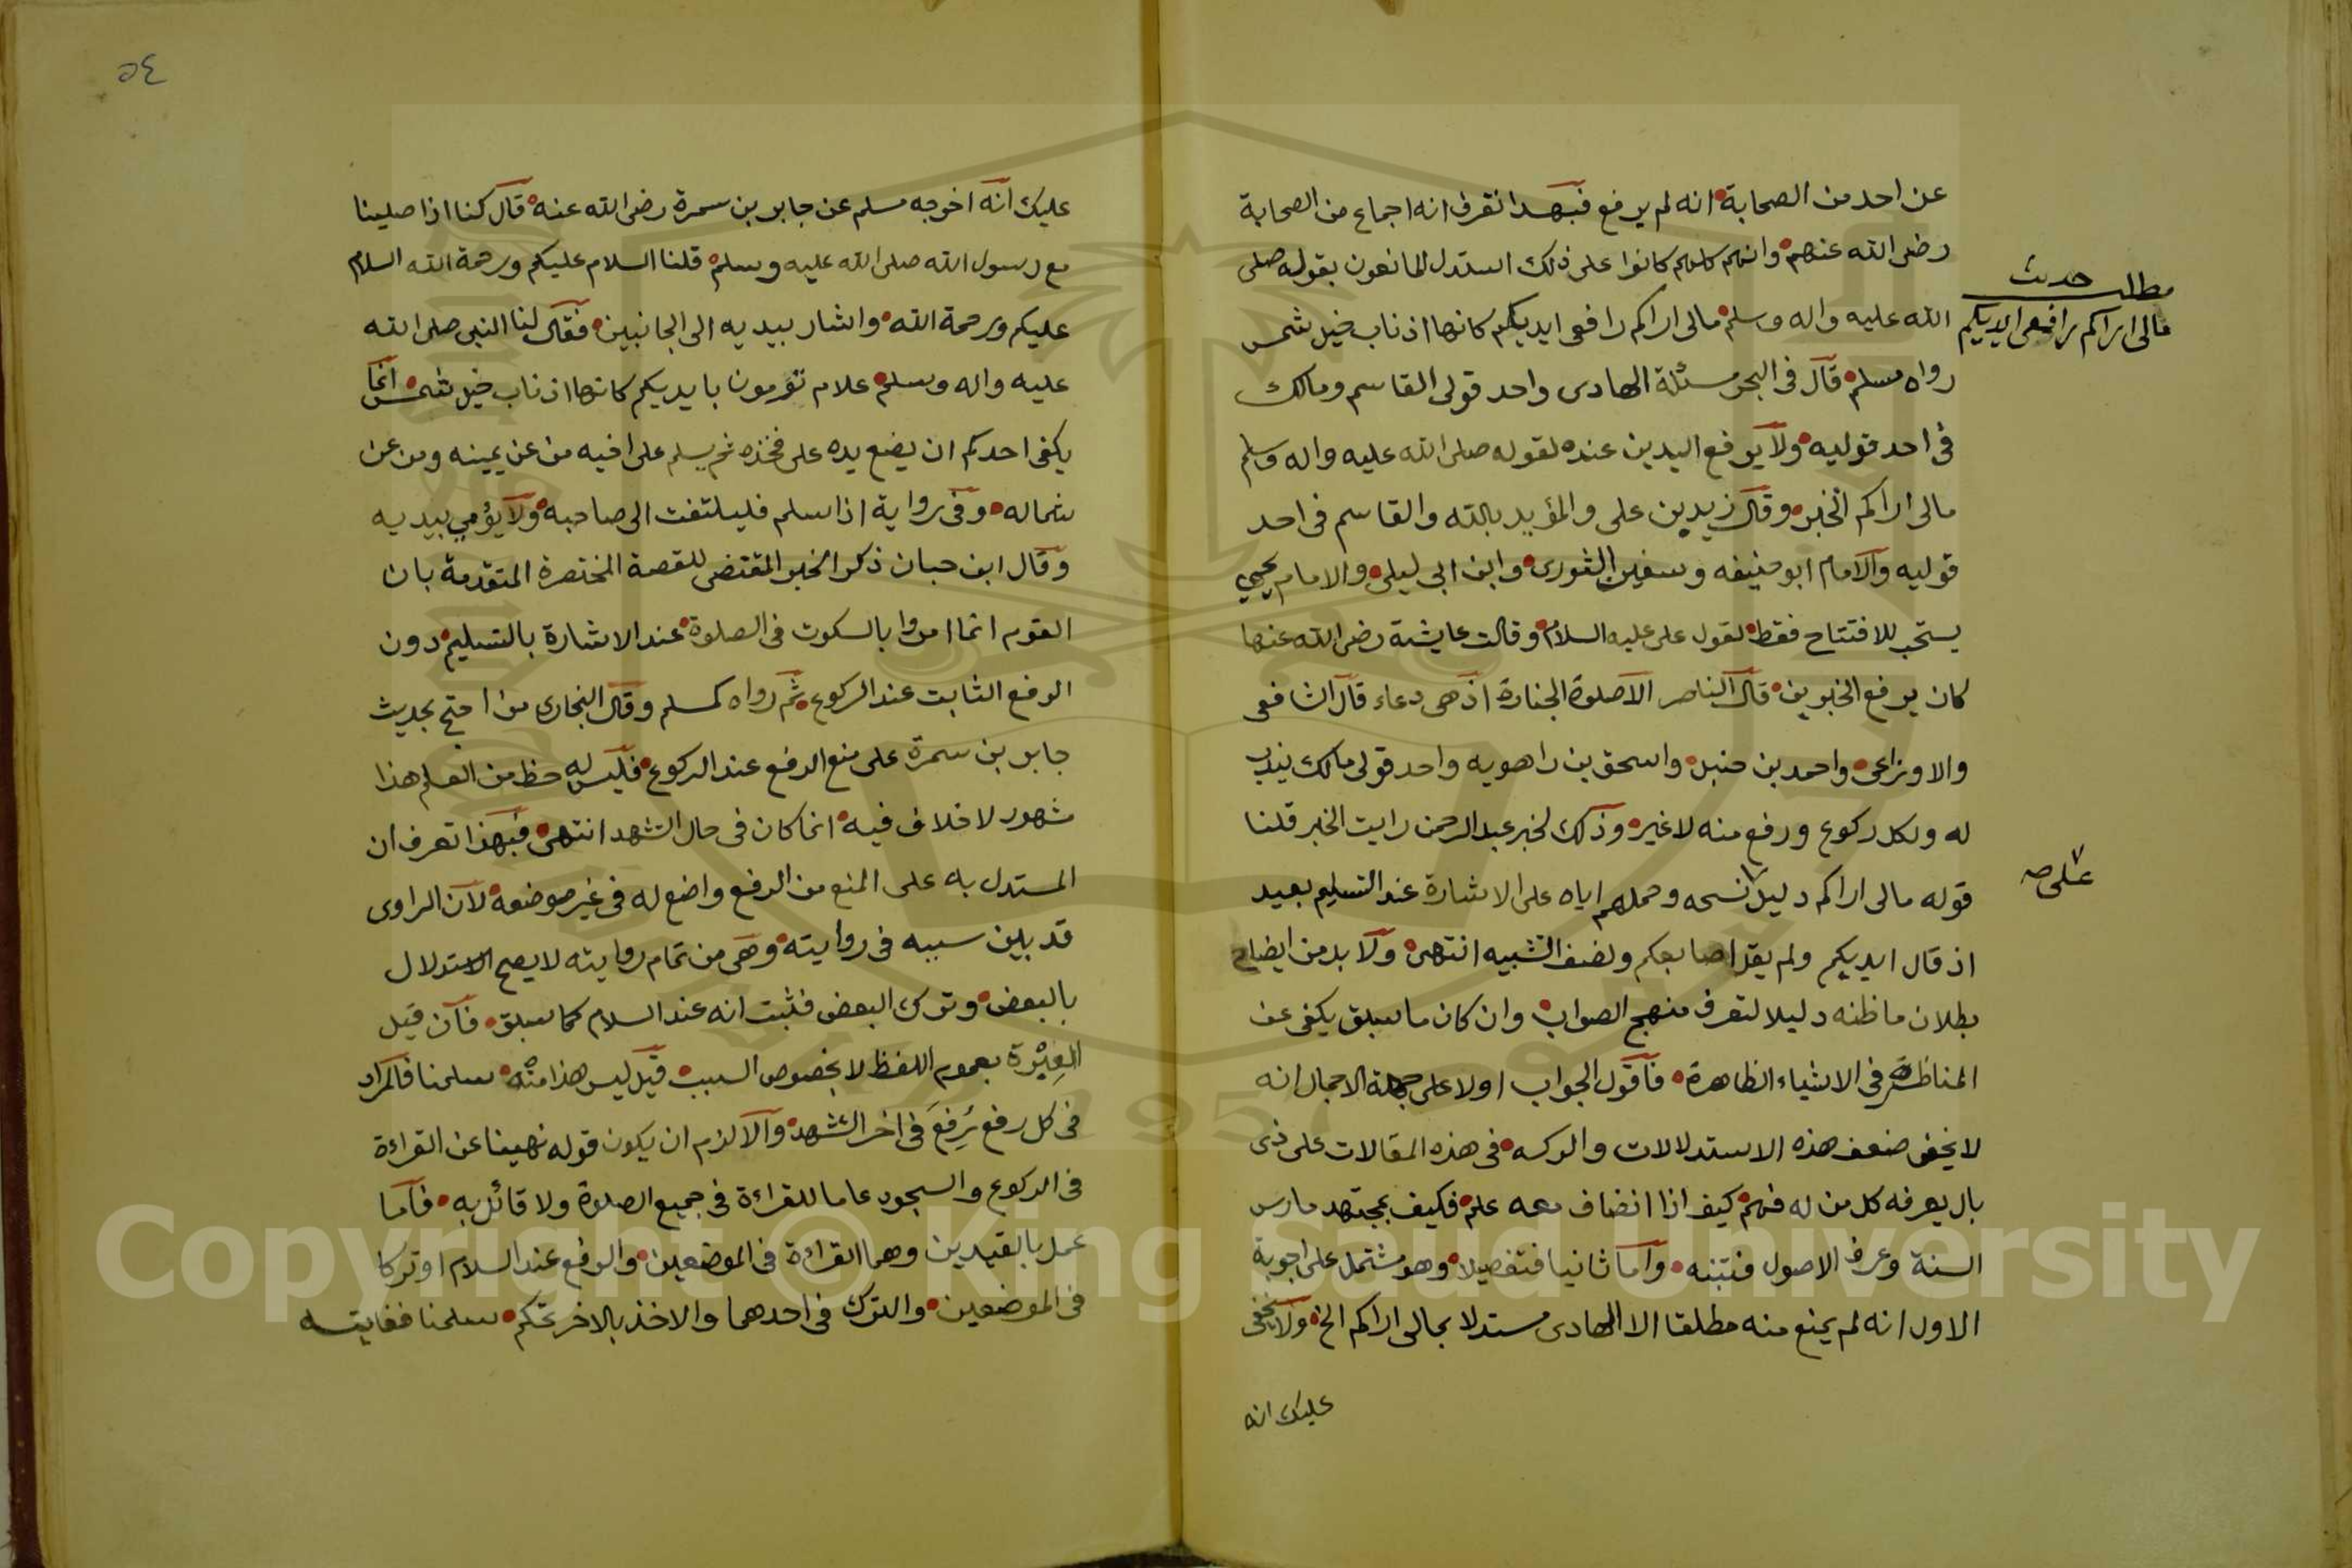 عن احد من الصحابة انه لم يرفع فبهذا تعرف انه اجماع من الصحابة
رضى الله عنهم وانهم كلهم كانوا على ذلك استدل المانعون بقوله صلى
الله عليه واله وسلم مالى اراكم رافعى ايديكم كانها اذناب خيل شمس
رواه مسلم قال فى البحر مسئلة الهادى واحد قولى القاسم ومالك
فى احد قوليه ولا يرفع اليدين عنده لقوله صلى الله عليه واله وسلم
مالى اراكم الخبر وقال زيد بن على والمؤيد بالله والقاسم فى احد
قوليه والامام ابو حنيفه وسفين الثورى وابن ابى ليلى والامام يحيى
يستحب للافتتاح فقط لقول على عليه السلام وقالت عايشة رضى الله عنها
كان يرفع الخبرين قال الناصر الا صلوة الجنازة اذ هى دعاء قال الشافعى
والاوزاعى واحمد بن حنبل واسحق بن راهويه واحد قولى مالك يندب
له ولكل ركوع ورفع منه لا غيره وذلك لخبر عبد الرحمن رايت الخبر قلنا
قوله مالى اراكم دليل نسخه وحملهم اياه على الاشارة عند التسليم بعيد
اذ قال ايديكم ولم يقل اصابعكم ولضعف التشبيه انتهى ولا بد من ايضاح
بطلان ما ظنه دليلا لتعرف منهج الصواب وان كان ما سبق يكفى عن
المناظرة فى الاشياء الظاهرة فاقول الجواب اولا على جملة الاجمال انه
لا يخفى ضعف هذه الاستدلالات والركه فى هذه المقالات على ذى
بال يعرفه كل من له فهم كيف اذا انضاف معه علم فكيف بمجتهد مارس
السنة وعرف الاصول فتنبه واما ثانيا فتفصيلا وهو مشتمل على اجوبة
الاول انه لم يمنع منه مطلقا الا الهادى مستدلا بمالى اراكم الخ ولا يخفى
عليك انه
مطلب حديث
مالى اراكم رافعى ايديكم
على صه
٥٤
عليك انه اخرجه مسلم عن جابر بن سمرة رضى الله عنه قال كنا اذا صلينا
مع رسول الله صلى الله عليه وسلم قلنا السلام عليكم ورحمة الله السلام
عليكم ورحمة الله واشار بيديه الى الجانبين فقال لنا النبى صلى الله
عليه واله وسلم علام تؤمون بايديكم كانها اذناب خيل شمس انما
يكفى احدكم ان يضع يده على فخذه ثم يسلم على اخيه من عن يمينه ومن عن
شماله وفى رواية اذا سلم فليلتفت الى صاحبه ولا يؤمي بيديه
وقال ابن حبان ذكر الخبر المقتضى للقصة المختصرة المتقدمة بان
القوم انما امروا بالسكوت فى الصلوة عند الاشارة بالتسليم دون
الرفع الثابت عند الركوع ثم رواه كمسلم وقال البخارى من احتج بحديث
جابر بن سمرة على منع الرفع عند الركوع فليس له حظ من العلم هذا
مشهور لا خلاف فيه انما كان فى حال التشهد انتهى فبهذا تعرف ان
المستدل به على المنع من الرفع واضع له فى غير موضعه لان الراوى
قد بين سببه فى روايته وهى من تمام روايته لا يصح الاستدلال
بالبعض وترك البعض فثبت انه عند السلام كما سبق فان قيل
العبرة بعموم اللفظ لا بخصوص السبب قيل ليس هذا منه سلمنا فالمراد
فى كل رفع يرفع فى اخر التشهد والا لزم ان يكون قوله نهينا عن القراءة
فى الركوع والسجود عاما للقراءة فى جميع الصلوة ولا قائل به فاما
عمل بالقيدين وهما القراءة فى الموضعين والرفع عند السلام او تركا
فى الموضعين والترك فى احدهما والاخذ بالاخر تحكم سلمنا فغايته
Copyright © King Saud University
1957